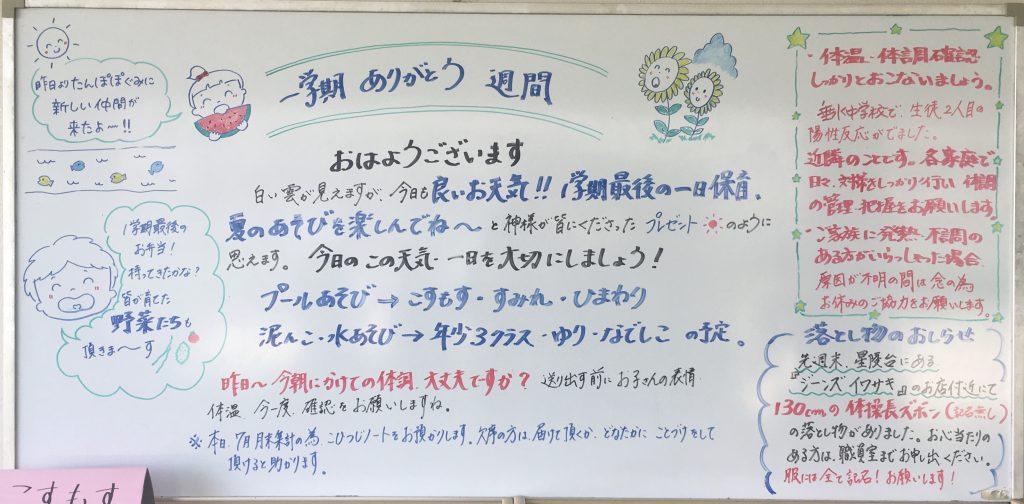 昨日よりたんぽぽぐみに
新しい仲間が
来たよ〜!!
一学期 ありがとう 週間
おはようございます
白い雲が見えますが、今日も良いお天気!! 1学期最後の一日保育、
夏のあそびを楽しんでね〜 と神様が皆にくださった プレゼント のように
思えます。今日のこの天気、一日を大切にしましょう!
プールあそび→こすもす・すみれ・ひまわり
泥んこ・水あそび→年少3クラス・ゆり・なでしこ の予定。
昨日〜今朝にかけての体調、大丈夫ですか? 送り出す前にお子さんの表情
体温 今一度、確認をお願いしますね。
※本日、7月月末集計の為、こひつじノートをお預かりします。欠席の方は、届けて頂くか、どなたかに ことづけをして
頂けると助かります。
1学期最後の
お弁当!
持ってきたかな?
皆が育てた
野菜たちも
頂きま〜す
・体温、体調確認
しっかりとおこないましょう。
垂水中学校で、生徒2人目の
陽性反応がでました。
近隣のことです。各家庭で
日々、対策をしっかり行い 体調
の管理・把握をお願いします。
・ご家族に発熱・不調の
ある方がいらっしゃった場合
原因が不明の間は念の為
お休みのご協力をお願いします。
落とし物のおしらせ
先週末、星陵台にある
『ジーンズイワサキ』のお店付近にて
130cmの体操長ズボン(記名無し)
の落とし物がありました。お心当たりの
ある方は、職員室までお申し出ください。
服には全て記名!お願いします!
こすもす